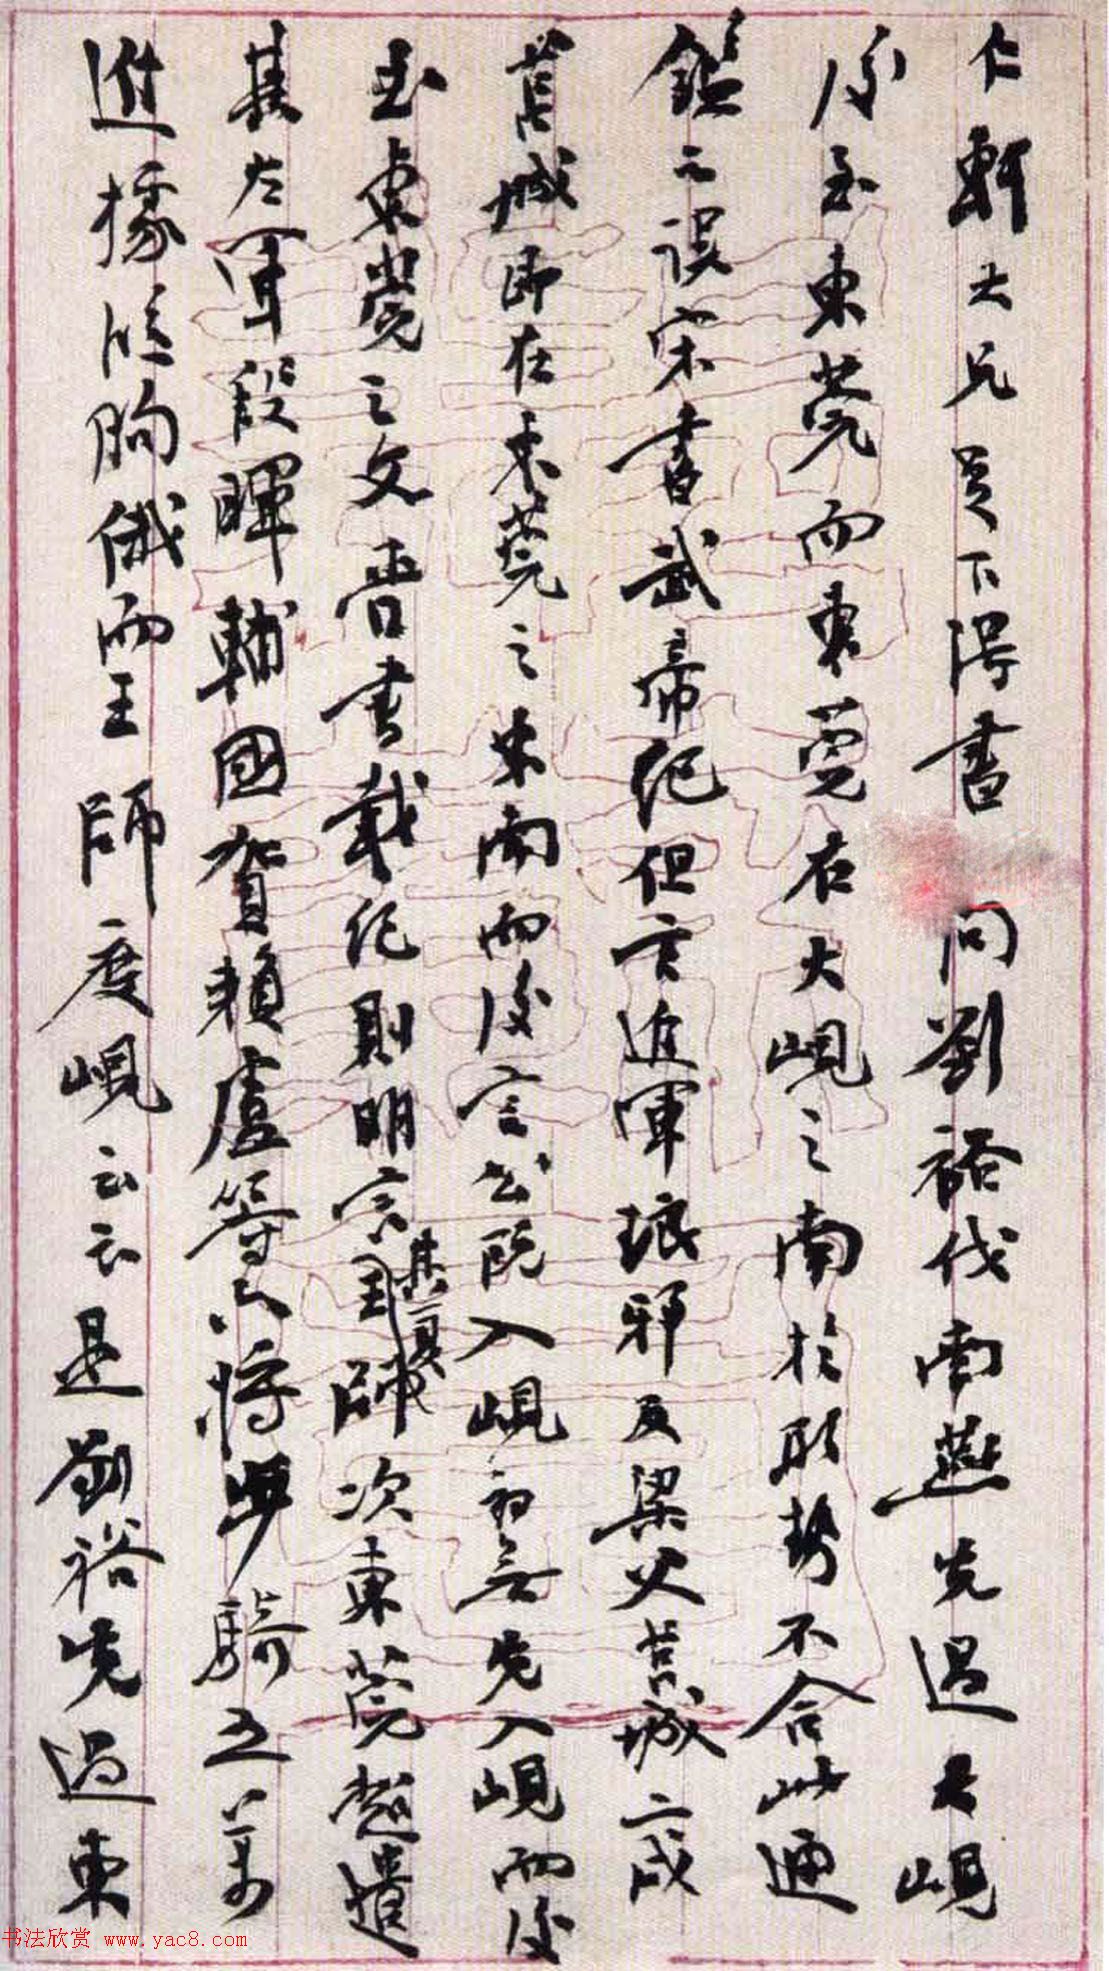 仁軒大兄足下得書問劉裕伐南燕先過大峴
後至東莞而東莞在大峴之南於形勢不合此通
鑑之誤宋書武帝紀但言進軍琅邪及梁父莒城二戍
莒城即在東莞之東南而後言公既入峴初無先入峴而後
至東莞之文晉書載紀則明言王師次東莞超遣
其左軍段暉輔國賀賴盧等六將步騎五萬
進據臨朐俄而王師度峴云云是劉裕先過東
书法欣赏 www.yac8.com